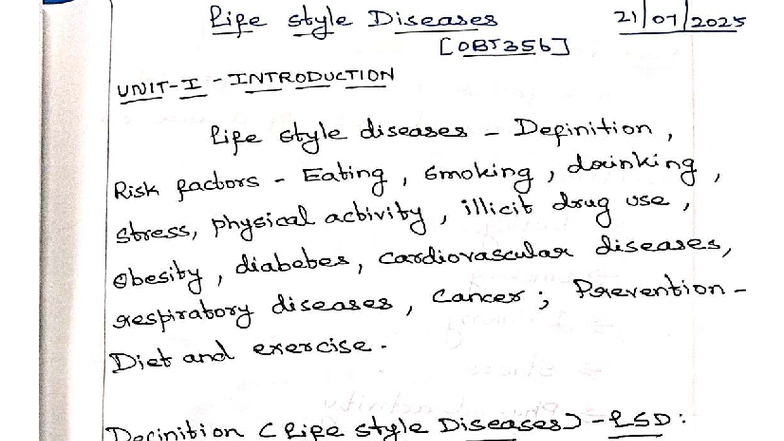 Life style Diseases 21/07/2025
[OBT356]
UNIT-I - INTRODUCTION
Life style diseases - Definition,
Risk factors - Eating, smoking, drinking,
stress, physical activity, illicit drug use,
obesity, diabetes, cardiovascular diseases,
respiratory diseases, cancer; Prevention -
Diet and exercise.
Definition (Life style Diseases) - LSD: